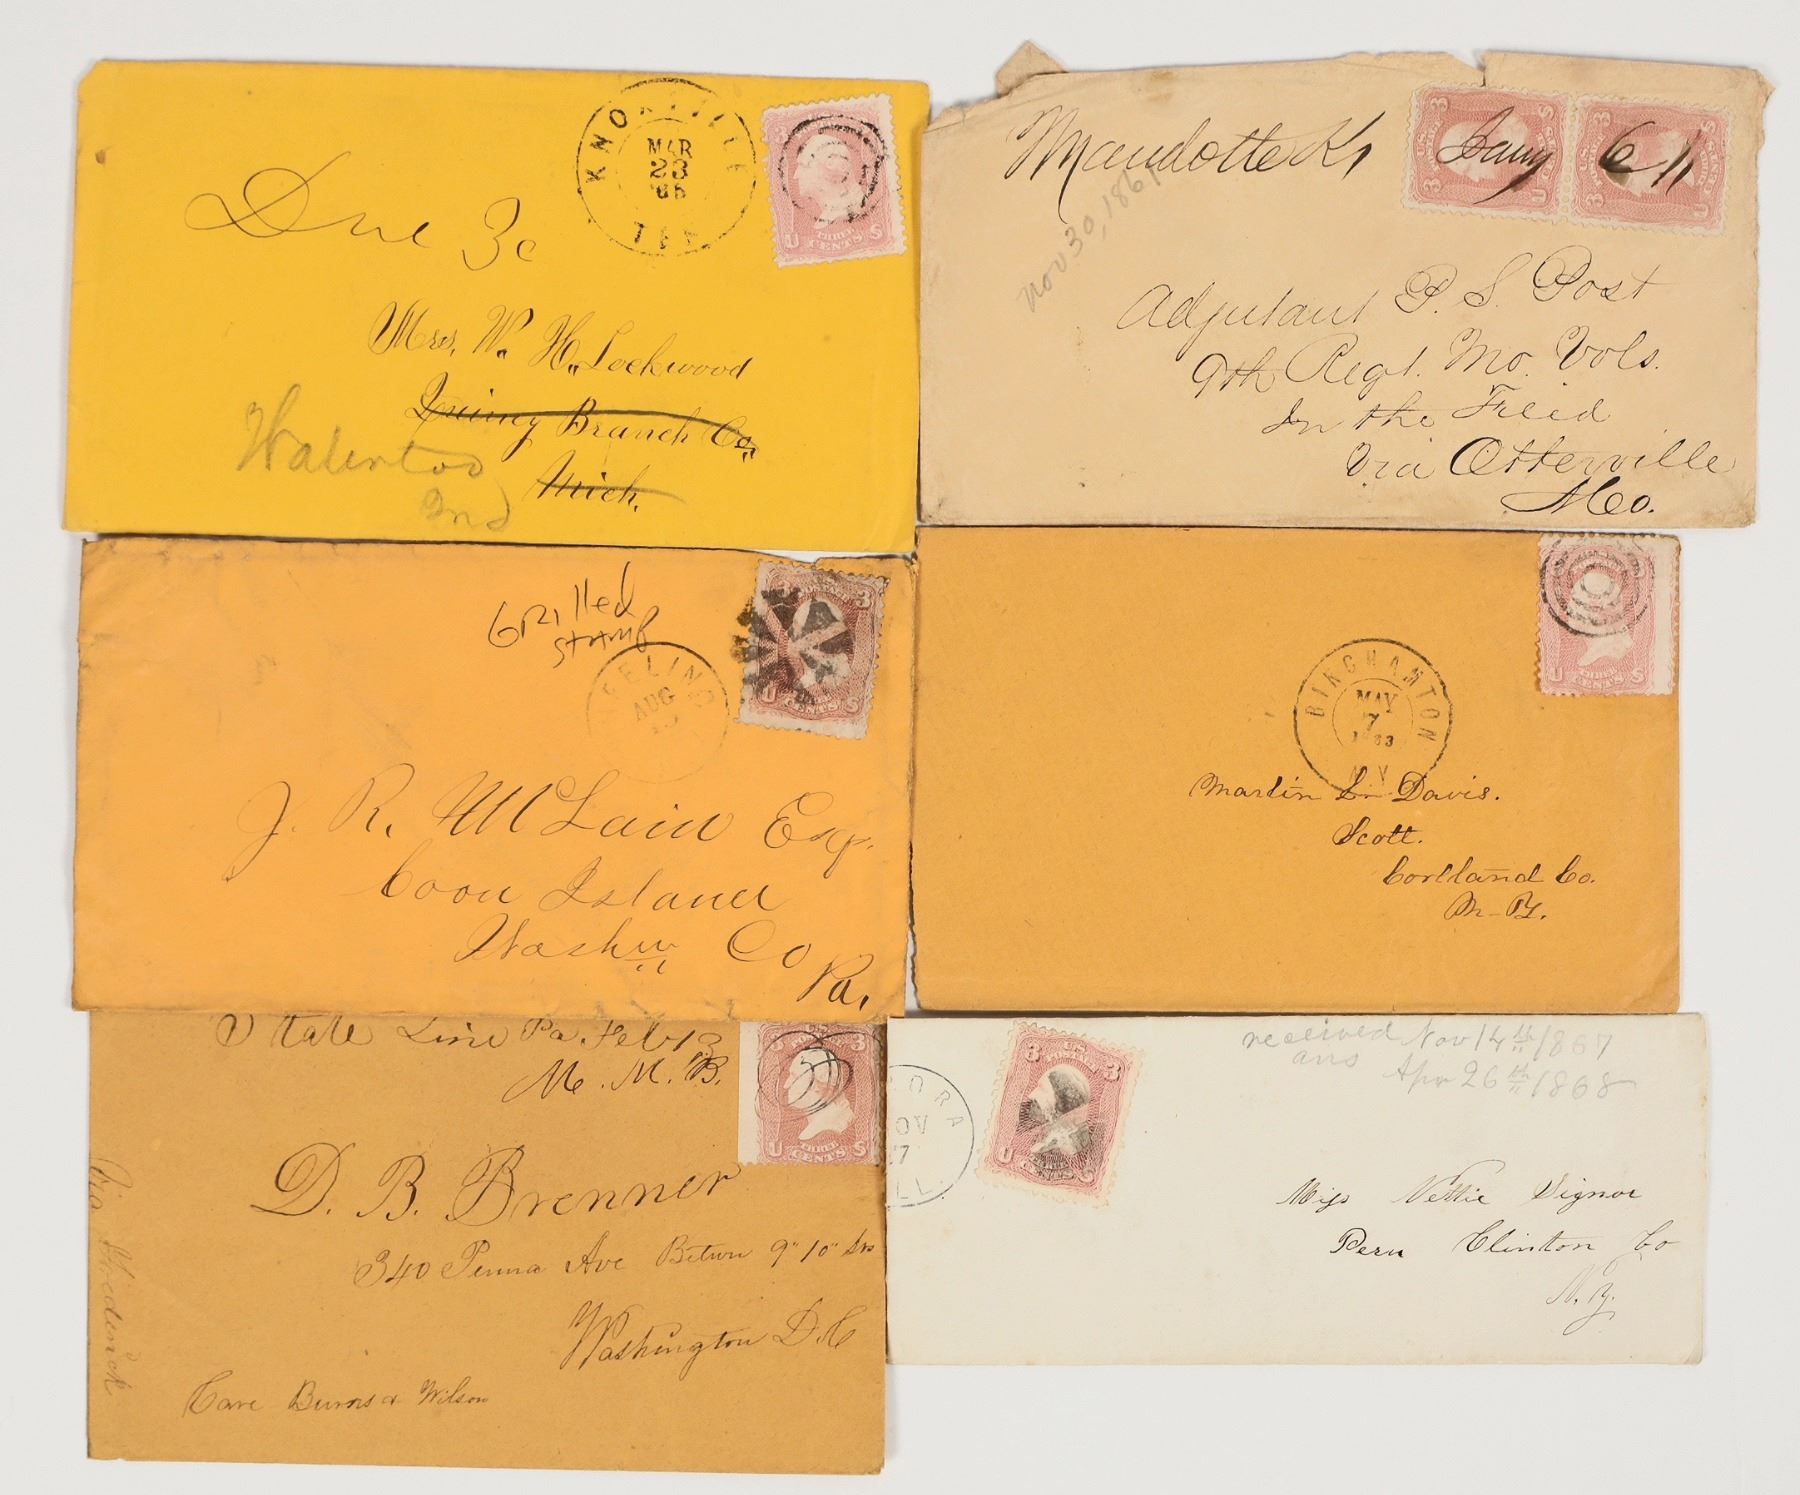 KNOXVILLE
MAR
23
'65
TEN.
Due 3c
U THREE CENTS S
Mrs. W. H. Lockwood
Quincy Branch Co,
Mich.
Waterloo
Ind
Jany 6th
3
3
U
S
Nov 30, 1861
Adjutant P. S. Post
9th Regt. Mo. Vols.
In the Field
Via Otterville
Mo.
Grilled
stamp
AUG
3
U CENTS S
J. R. McLain Esq.
Coon Island
Washn Co
Pa,
BINGHAMTON
MAY
7
1863
N.Y.
U THREE CENTS S
Martin L. Davis.
Scott.
Cortland Co.
N-Y.
State Line Pa. Feb 13
M. M. B.
3
U THREE CENTS S
D. B. Brenner
340 Penna Ave Betwn 9" 10" Sts
Washington D.C
Care Burns & Wilson
Via Frederick
ORA
OV
17
ILL.
3
U S
received Nov 14th 1867
ans Apr 26th 1868
Miss Nettie Signor
Peru Clinton Co
N.Y.